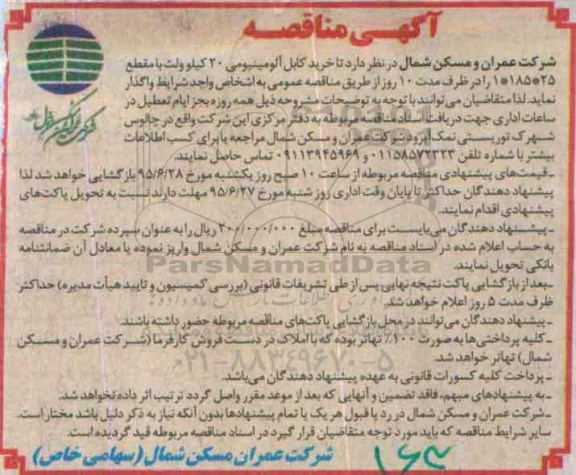 آگهی مناقصه
شرکت عمران و مسکن شمال در نظر دارد تا خرید کابل آلومینیومی ۲۰ کیلو ولت با مقطع
۲۵*۱۸۵*۱ را در ظرف مدت ۱۰ روز از طریق مناقصه عمومی به اشخاص واجد شرایط واگذار
نماید. لذا متقاضیان می‌توانند با توجه به توضیحات مشروحه ذیل همه روزه بجز ایام تعطیل در
ساعات اداری جهت دریافت اسناد مناقصه مربوطه به دفتر مرکزی این شرکت واقع در چالوس
شهرک توریستی نمک آبرود شرکت عمران و مسکن شمال مراجعه یا برای کسب اطلاعات
بیشتر با شماره تلفن ۰۱۱۵۸۵۷۳۳۲۳ و ۰۹۱۱۳۹۴۵۹۶۹ تماس حاصل نمایند.
ـ قیمت‌های پیشنهادی مناقصه مربوطه از ساعت ۱۰ صبح روز یکشنبه مورخ ۹۵/۶/۲۸ بازگشایی خواهد شد لذا
پیشنهاد دهندگان حداکثر تا پایان وقت اداری روز شنبه مورخ ۹۵/۶/۲۷ مهلت دارند نسبت به تحویل پاکت‌های
پیشنهادی اقدام نمایند.
ـ پیشنهاد دهندگان می‌بایست برای مناقصه مبلغ ۲۰۰/۰۰۰/۰۰۰ ریال را به عنوان سپرده شرکت در مناقصه
به حساب اعلام شده در اسناد مناقصه به نام شرکت عمران و مسکن شمال واریز نموده یا معادل آن ضمانتنامه
بانکی تحویل نمایند.
ـ بعد از بازگشایی پاکت نتیجه نهایی پس از طی تشریفات قانونی (بررسی کمیسیون و تایید هیأت مدیره) حداکثر
ظرف مدت ۵ روز اعلام خواهد شد.
ـ پیشنهاد دهندگان می‌توانند در محل بازگشایی پاکت‌های مناقصه مربوطه حضور داشته باشند.
ـ کلیه پرداختی‌ها به صورت ۱۰۰٪ تهاتر بوده که با املاک در دست فروش کارفرما (شرکت عمران و مسکن
شمال) تهاتر خواهد شد.
ـ پرداخت کلیه کسورات قانونی به عهده پیشنهاد دهندگان می‌باشد.
ـ به پیشنهادهای مبهم، فاقد تضمین و آنهایی که بعد از موعد مقرر واصل گردد ترتیب اثر داده نخواهد شد.
ـ شرکت عمران و مسکن شمال در رد یا قبول هر یک یا تمام پیشنهادها بدون آنکه نیاز به ذکر دلیل باشد مختار است.
سایر شرایط مناقصه که باید مورد توجه متقاضیان قرار گیرد در اسناد مناقصه مربوطه قید گردیده است.
شرکت عمران مسکن شمال (سهامی خاص)
۱۶۳
ParsNamadData
۰۲۱-۸۸۳۴۹۶۷۰-۵